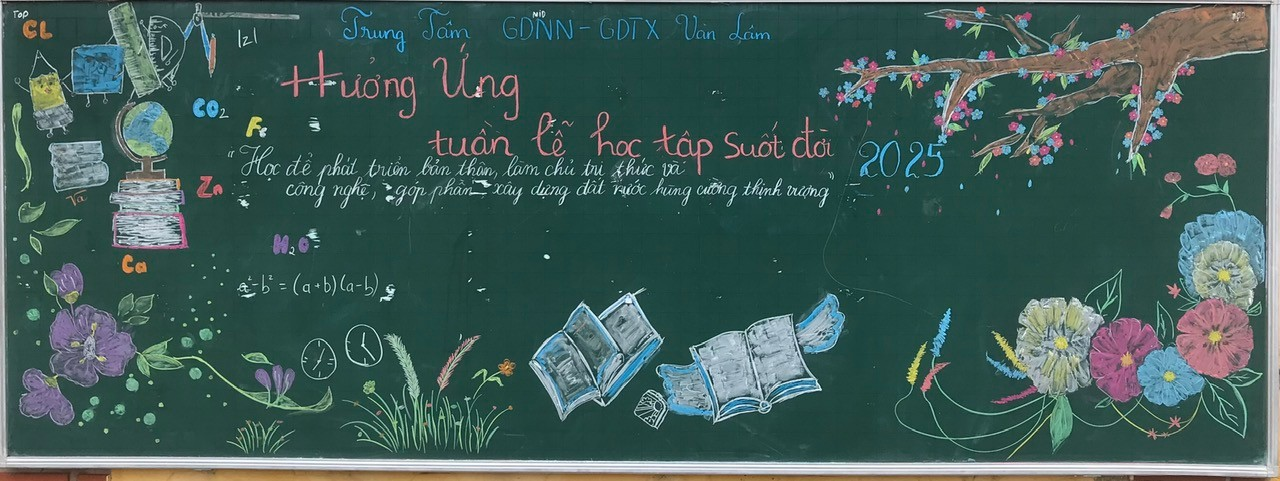 TOP
CL
|z|
NID
Trung Tâm GDNN - GDTX Văn Lâm
Hưởng Ứng
CO2
Fe
tuần lễ học tập suốt đời 2025
"Học để phát triển bản thân, làm chủ tri thức và
công nghệ, góp phần xây dựng đất nước hùng cường thịnh vượng"
Zn
Va
H2O
Ca
a²-b² = (a+b)(a-b)